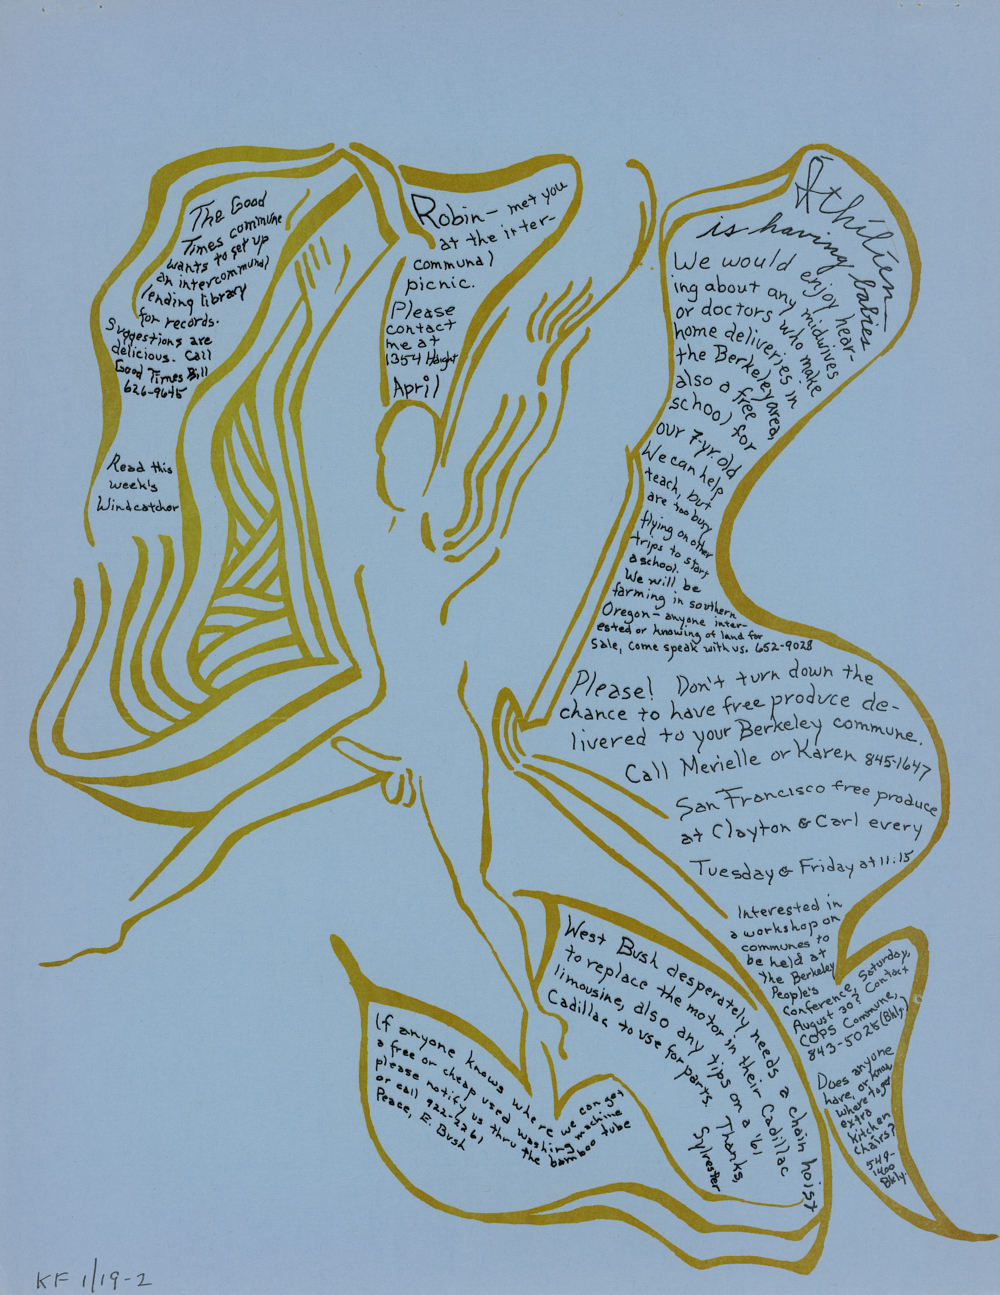 The Good
Times commune
wants to set up
an intercommunal
lending library
for records.
Suggestions are
delicious. Call
Good Times Bill
626-9645
Read this
week's
Windcatcher
Robin - met you
at the inter-
communal
picnic.
Please
contact
me at
1354 Haight
April
Éthilien
is having babies
We would enjoy hear-
ing about any midwives
or doctors who make
home deliveries in
the Berkeley area,
also a free
school for
our 7-yr. old
We can help
teach, but
are too busy
flying on other
trips to start
a school.
We will be
farming in southern
Oregon - anyone inter-
ested or knowing of land for
sale, come speak with us. 652-9028
Please! Don't turn down the
chance to have free produce de-
livered to your Berkeley commune.
Call Merielle or Karen 845-1647
San Francisco free produce
at Clayton & Carl every
Tuesday & Friday at 11:15
Interested in
a workshop on
communes to
be held at
the Berkeley
People's
Conference, Saturday,
August 30? Contact
COPS Commune,
843-5025 (Bkly.)
Does anyone
have, or know
where to get
extra
kitchen
chairs?
549-
1400
Bkly.
West Bush desperately needs a chain hoist
to replace the motor in their Cadillac
limousine, also any tips on a '61
Cadillac to use for parts. Thanks,
Sylvester
If anyone knows where we can get
a free or cheap used washing machine
please notify us thru the bamboo tube
or call 922-2261
Peace, E. Bush
KF 1/19-2